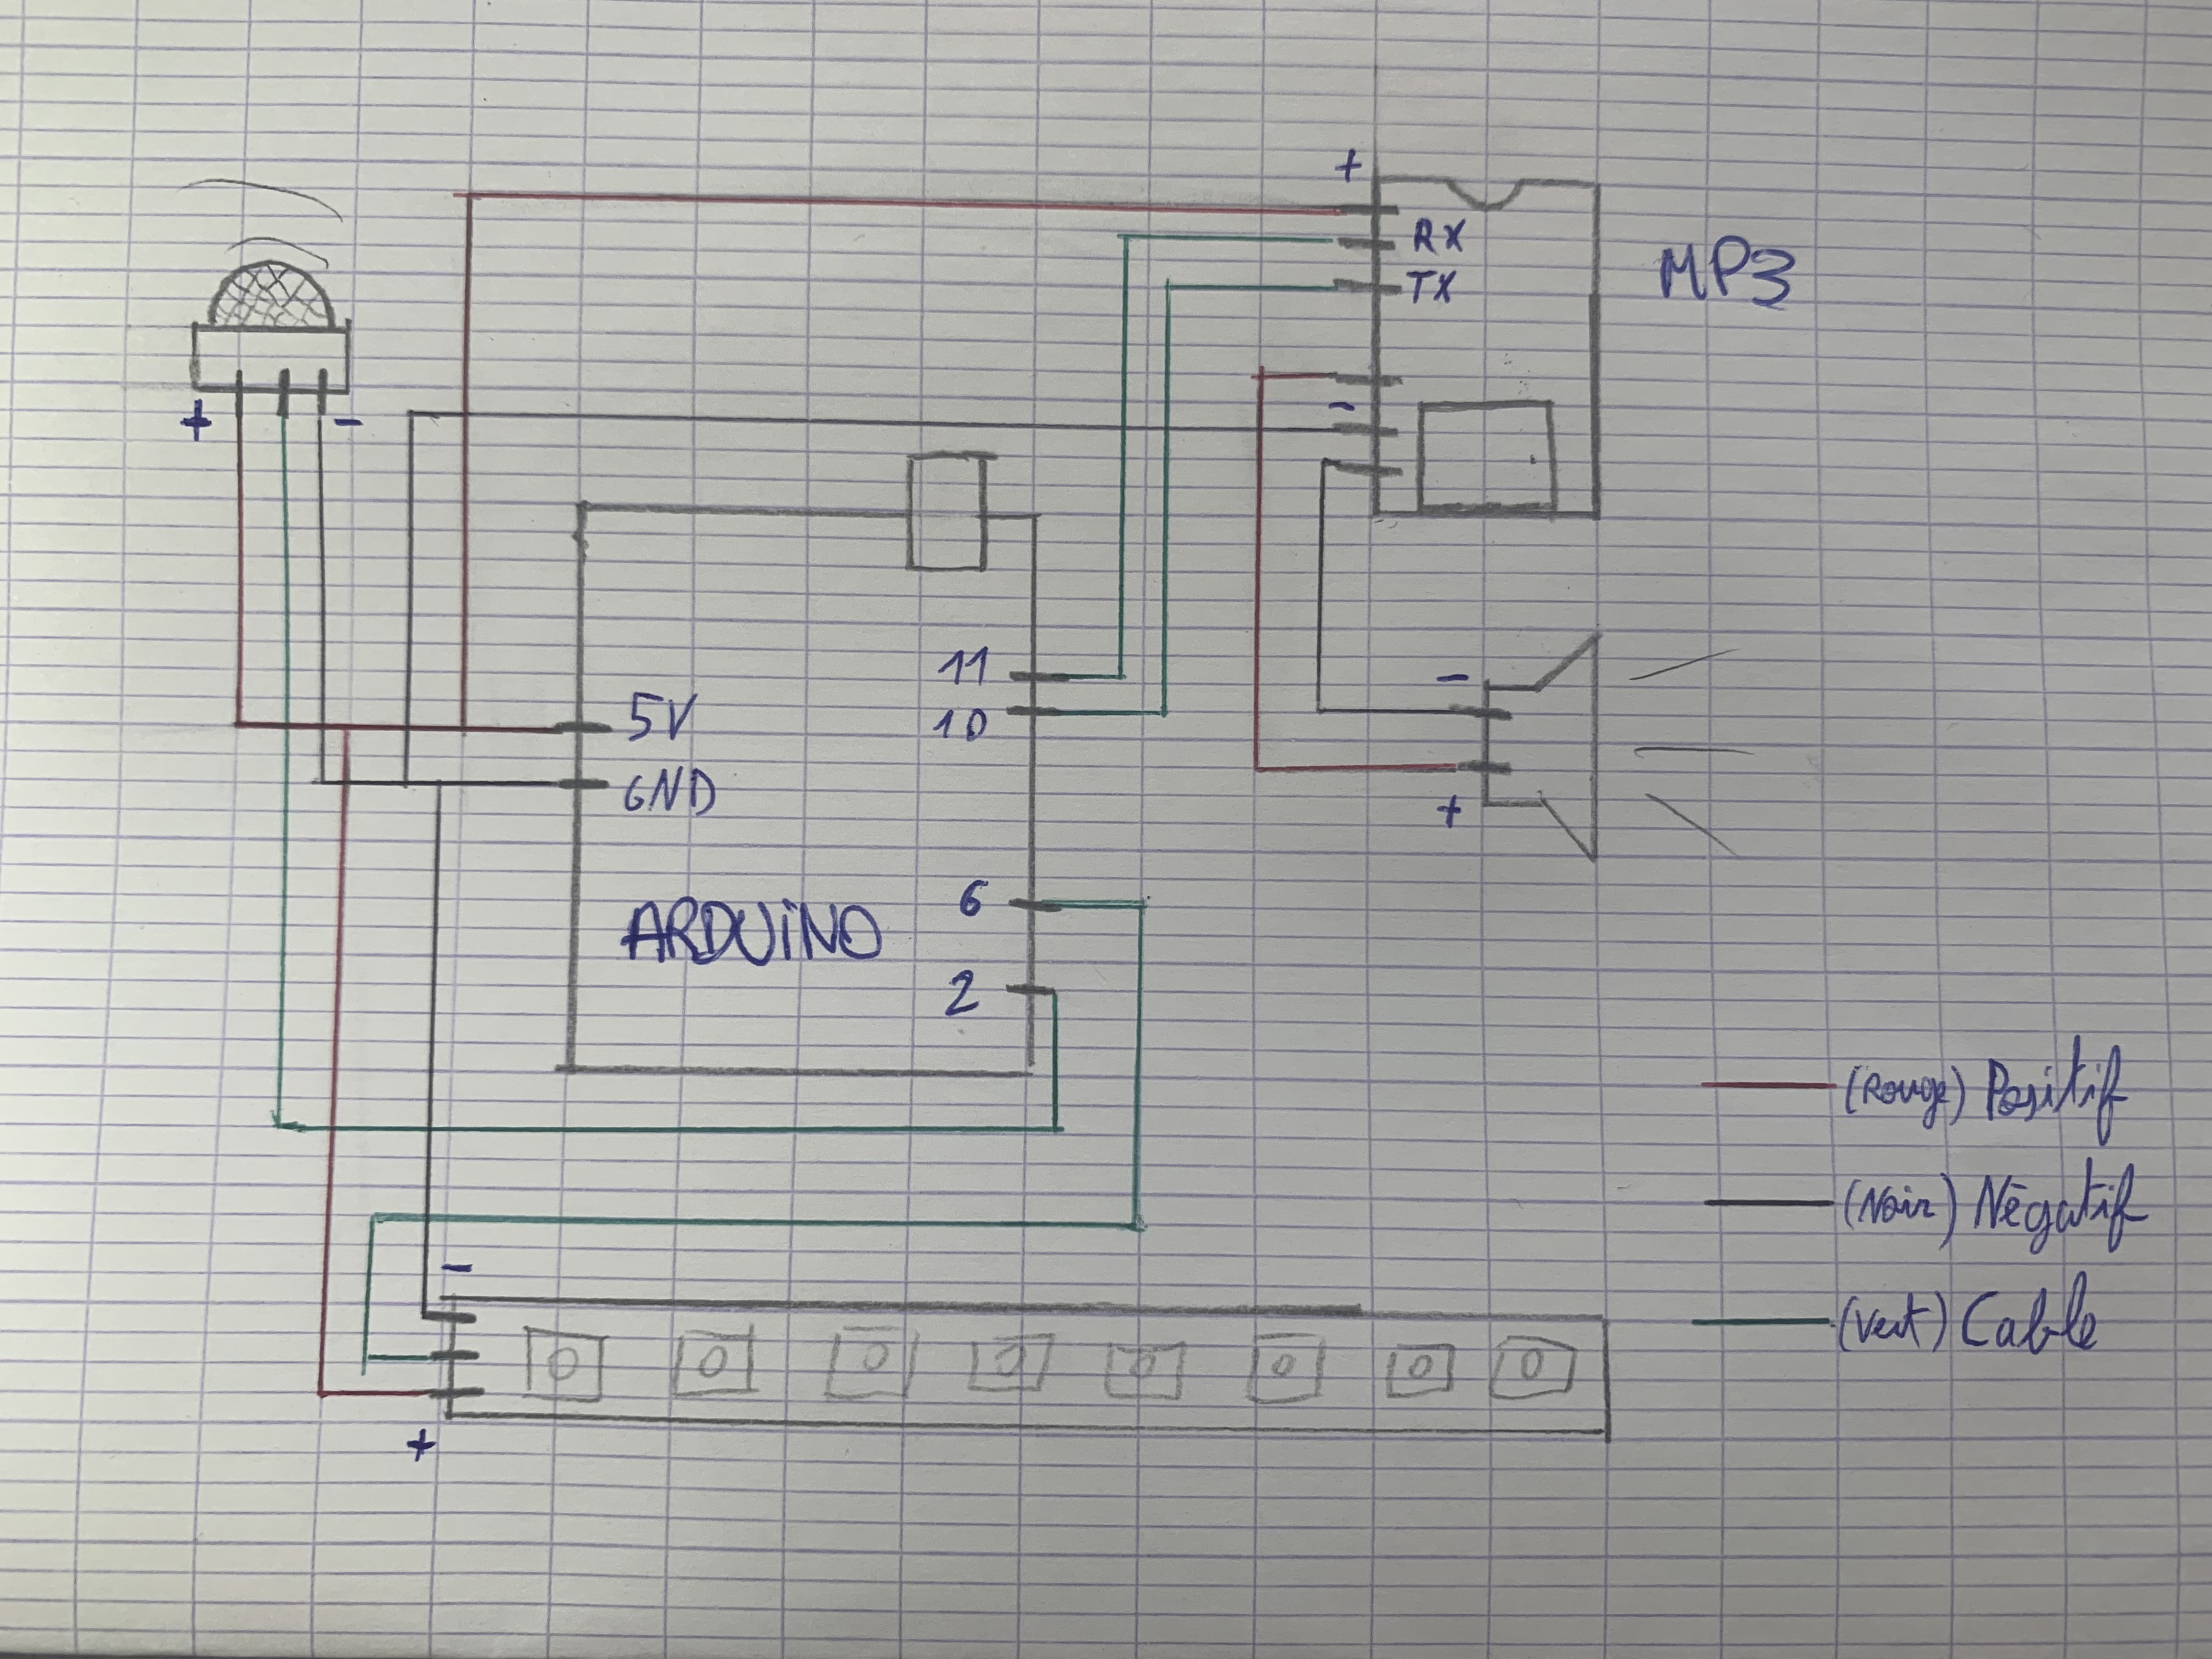 +
RX
TX
MP3
+
-
-
11
10
5V
GND
-
+
6
ARDUiNO
2
(Rouge) Positif
(Noir) Négatif
(Vert) Cable
-
+